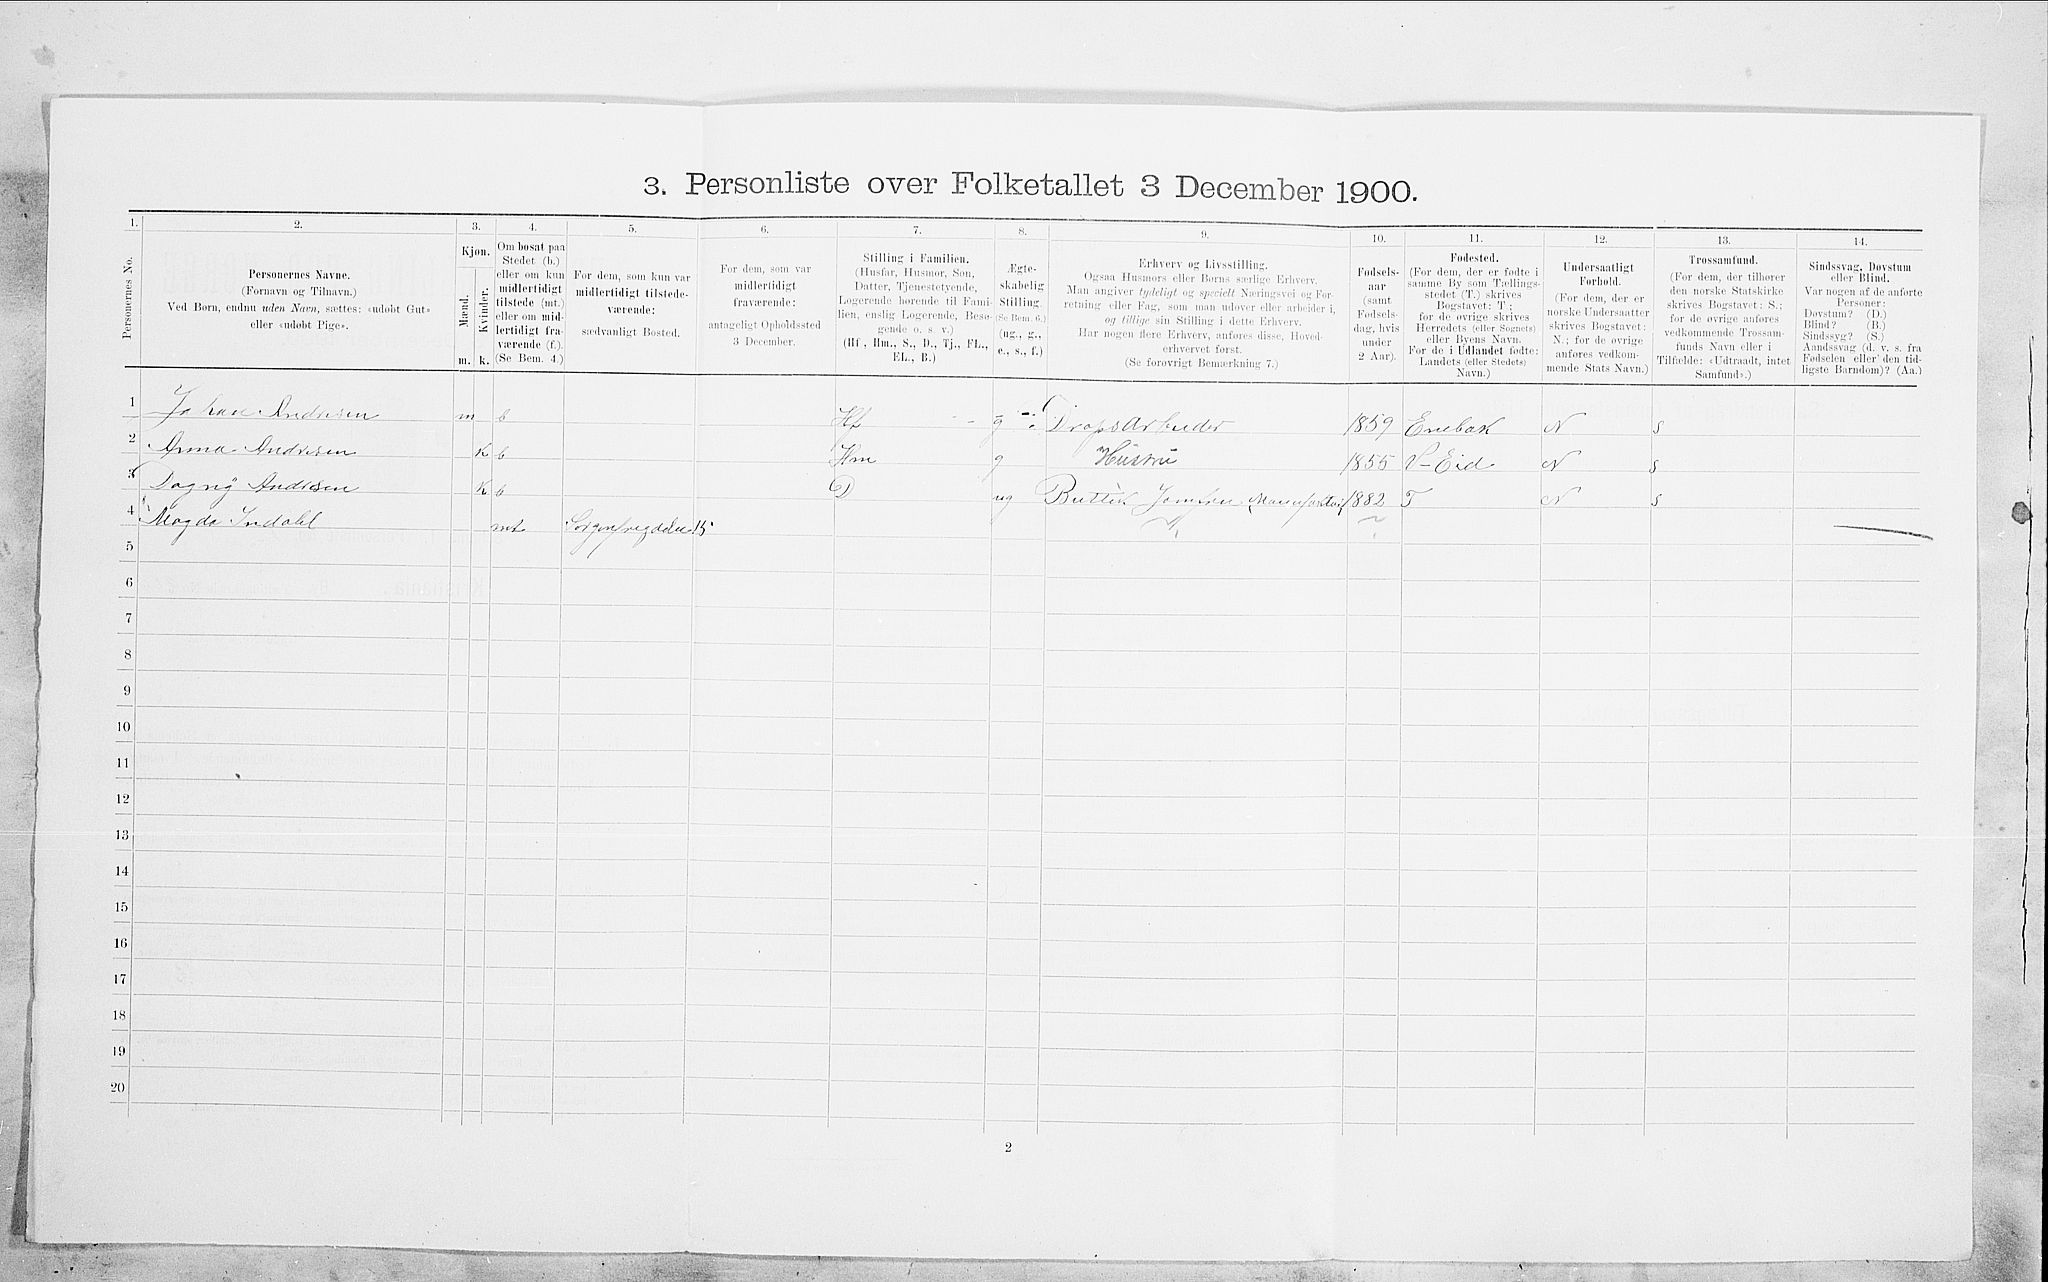 3. Personliste over Folketallet 3 December 1900.
1. 2. 3. 4. 5. 6. 7. 8. 9. 10. 11. 12. 13. 14.
Personernes No.
Personernes Navne.
(Fornavn og Tilnavn.)
Ved Børn, endnu uden Navn, sættes: «udøbt Gut»
eller «udøbt Pige».
Kjøn.
Mænd.
Kvinder.
m. k.
Om bosat paa
Stedet (b.)
eller om kun
midlertidigt
tilstede (mt.)
eller om mid-
lertidigt fra-
værende (f.).
(Se Bem. 4.)
For dem, som kun var
midlertidigt tilstede-
værende:
sædvanligt Bosted.
For dem, som var
midlertidigt
fraværende:
antageligt Opholdssted
3 December.
Stilling i Familien.
(Husfar, Husmor, Søn,
Datter, Tjenestetyende,
Logerende hørende til Fami-
lien, enslig Logerende, Besø-
gende o. s. v.)
(Hf., Hm., S., D., Tj., FL.,
EL., B.)
Ægte-
skabelig
Stilling.
(Se Bem. 6.)
(ug., g.,
e., s., f.)
Erhverv og Livsstilling.
Ogsaa Husmors eller Børns særlige Erhverv.
Man angiver tydeligt og specielt Næringsvei og For-
retning eller Fag, som man udøver eller arbeider i,
og tillige sin Stilling i dette Erhverv.
Har nogen flere Erhverv, anføres disse, Hoved-
erhvervet først.
(Se forøvrigt Bemærkning 7.)
Fødsels-
aar
(samt
Fødsels-
dag, hvis
under
2 Aar).
Fødested.
(For dem, der er fødte i
samme By som Tællings-
stedet (T.) skrives
Bogstavet: T;
for de øvrige skrives
Herredets (eller Sognets)
eller Byens Navn.
For de i Udlandet fødte:
Landets (eller Stedets)
Navn.)
Undersaatligt
Forhold.
(For dem, der er
norske Undersaatter
skrives Bogstavet:
N.; for de øvrige
anføres vedkom-
mende Stats Navn.)
Trossamfund.
(For dem, der tilhører
den norske Statskirke
skrives Bogstavet: S.;
for de øvrige anføres
vedkommende Trossam-
funds Navn eller i
Tilfælde: «Udtraadt, intet
Samfund».)
Sindssvag, Døvstum
eller Blind.
Var nogen af de anførte
Personer:
Døvstum? (D.)
Blind? (B.)
Sindssyg? (S.)
Aandssvag (d. v. s. fra
Fødselen eller den tid-
ligste Barndom)? (Aa.)
1 Johan Andresen m b Hf g Dropsarbeider 1859 Enebak N s
2 Anna Andresen K b Hm g Hustru 1855 V-Eid N s
3 Dagny Andresen K b D ug Butik Jomfru 1882 T N s
4 Magda Indahl mt 15
5
6
7
8
9
10
11
12
13
14
15
16
17
18
19
20
2